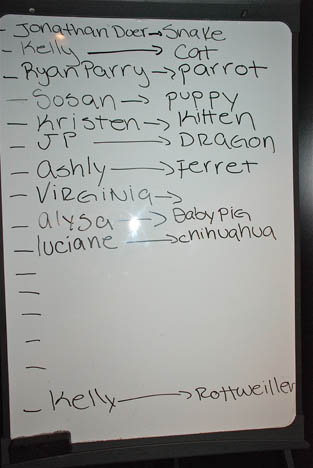 - Jonathan Doer → Snake
- Kelly → Cat
- Ryan Parry → Parrot
- Sosan → puppy
- Kristen → Kitten
- JP → DRAGON
- Ashly → Ferret
- VIRGINIA →
- alysa → Baby Pig
- luciane → chihuahua
-
-
-
-
-
- Kelly → Rottweiller